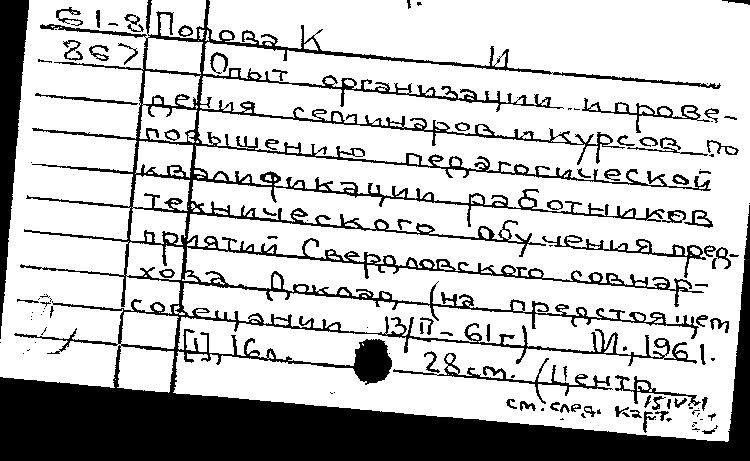 61-8 Попова, К И
867 Опыт организации и прове-
дения семинаров и курсов по
повышению педагогической
квалификации работников
технического обучения пред-
приятий Свердловского совнар-
хоза. Доклад (на предстоящем
совещании 13/II-61г). М., 1961.
[1], 16л. 28см. (Центр.
см. след. карт.